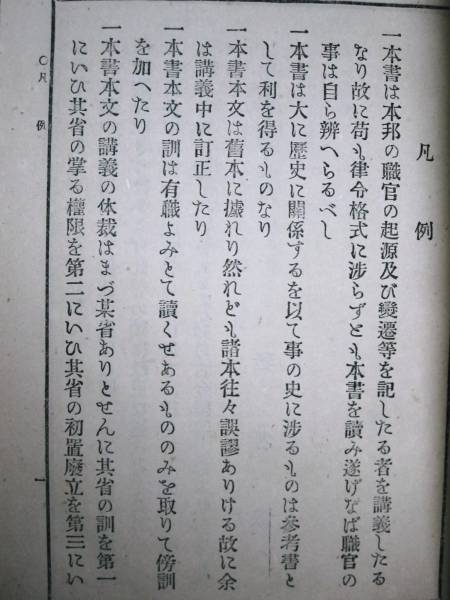 凡例
一本書は本邦の職官の起源及び變遷等を記したる者を講義したる
なり故に苟も律令格式に涉らずとも本書を讀み遂げなば職官の
事は自ら辨へらるべし
一本書は大に歷史に關係するを以て事の史に涉るものは參考書と
して利を得るものなり
一本書本文は舊本に據れり然れども諸本往々誤謬ありける故に余
は講義中に訂正したり
一本書本文の訓は有職よみとて讀くせあるもののみを取りて傍訓
を加へたり
一本書本文の講義の体裁はまづ某省ありとせんに其省の訓を第一
にいひ其省の掌る權限を第二にいひ其省の初置廢立を第三にい
○凡例
一